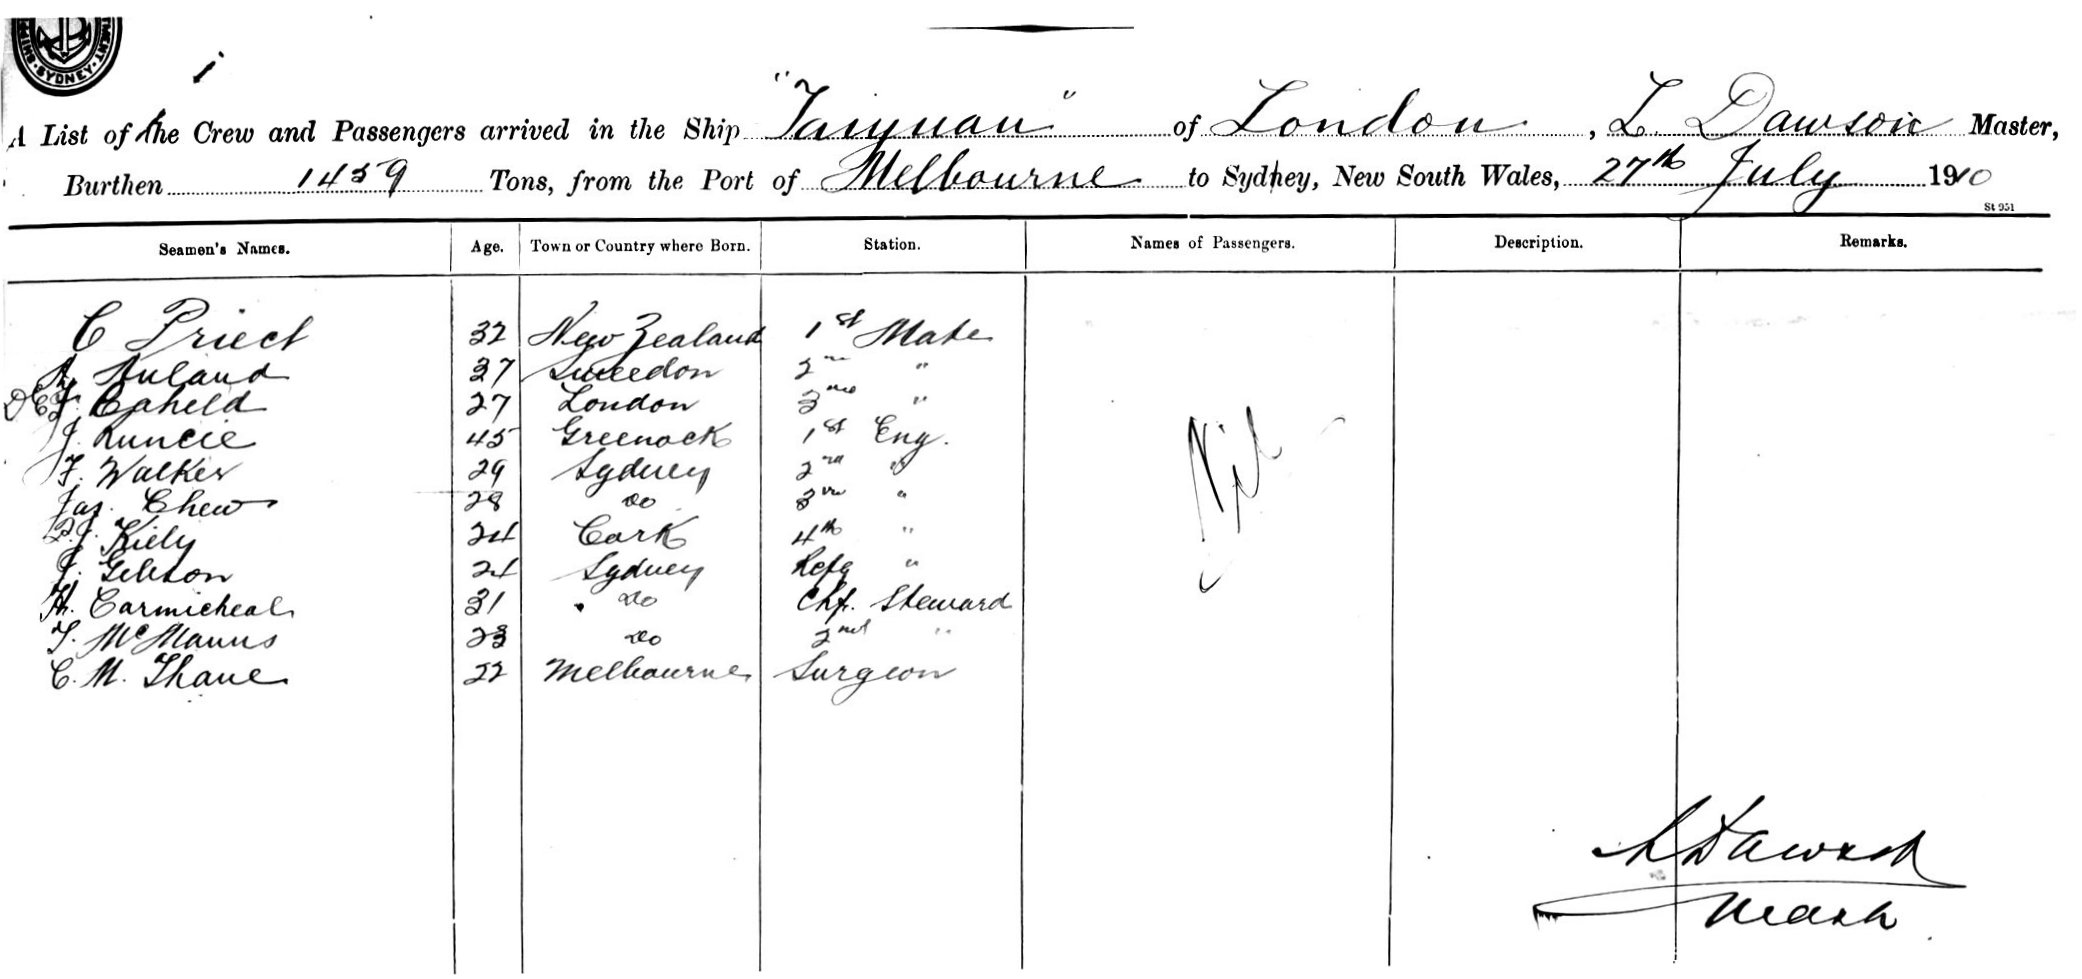 SYDNEY
A List of the Crew and Passengers arrived in the Ship "Taiyuan" of London, L. Dawson Master,
Burthen 1459 Tons, from the Port of Melbourne to Sydney, New South Wales, 27th July 1910
St 951
Seamen's Names. Age. Town or Country where Born. Station. Names of Passengers. Description. Remarks.
C Priest 32 New Zealand 1st Mate
A. 37 Sweedon 2nd "
27 London 3rd "
J. Runcie 45 Greenock 1st Eng.
F. Walker 29 Sydney 2nd "
Jas. Chew 28 do 3rd "
Kiely 24 Cork 4th "
J. Gibson 24 Sydney Refg "
H. Carmicheal 31 do Chf. Steward
T. McManus 23 do 2nd "
C. M. Thane 22 Melbourne Surgeon
Nil
L Dawson
Mastr